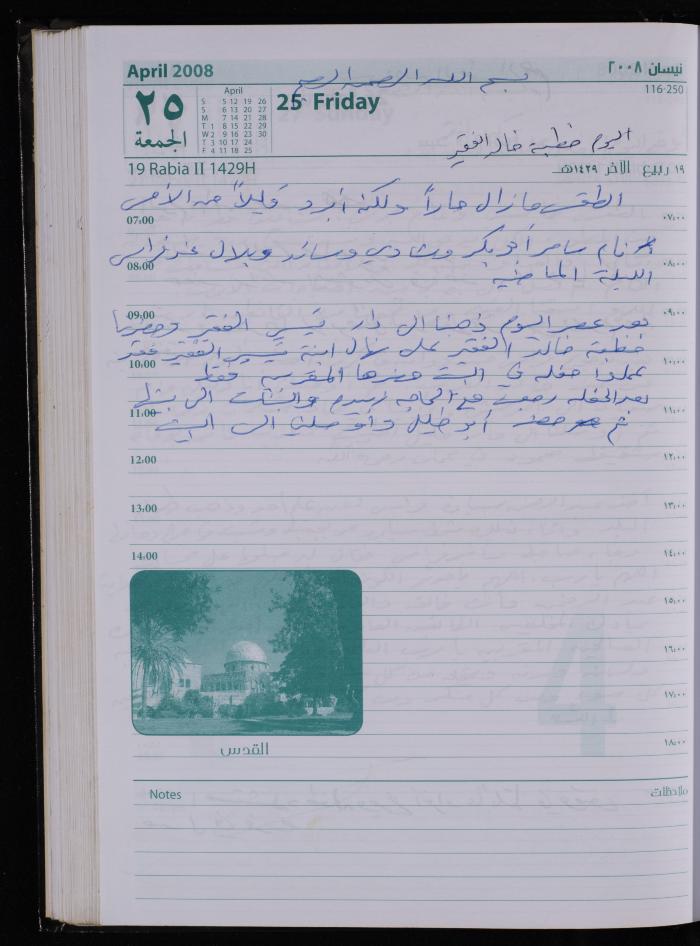 April 2008
نيسان ٢٠٠٨
بسم الله الرحمن الرحيم
116-250
٢٥
الجمعة
April
S 5 12 19 26
S 6 13 20 27
M 7 14 21 28
T 1 8 15 22 29
W 2 9 16 23 30
T 3 10 17 24
F 4 11 18 25
25 Friday
اليوم خطبة خالد الفقير
19 Rabia II 1429H
١٩ ربيع الآخر ١٤٢٩هـ
الطقس مازال حاراً ولكنه أبرد قليلاً من الأمس
07:00
٠٧:٠٠
نام سامر أبو بكر وشادي وسائد وبلال عند فراس
08:00
٠٨:٠٠
الليلة الماضية
09:00
٠٩:٠٠
بعد عصر اليوم ذهبنا الى دار تيسير الفقير وحضرنا
خطبة خالد الفقير على نهال ابنة تيسير الفقير فقد
10:00
١٠:٠٠
عملوا حفله في البيت حضرها المقربين فقط
بعد الحفله رجعت مع الحاجه والبنات الى
11:00
١١:٠٠
ثم أبو خليل وأوصلني الى البيت
12:00
١٢:٠٠
13:00
١٣:٠٠
14:00
١٤:٠٠
١٥:٠٠
١٦:٠٠
١٧:٠٠
١٨:٠٠
القدس
Notes
ملاحظات